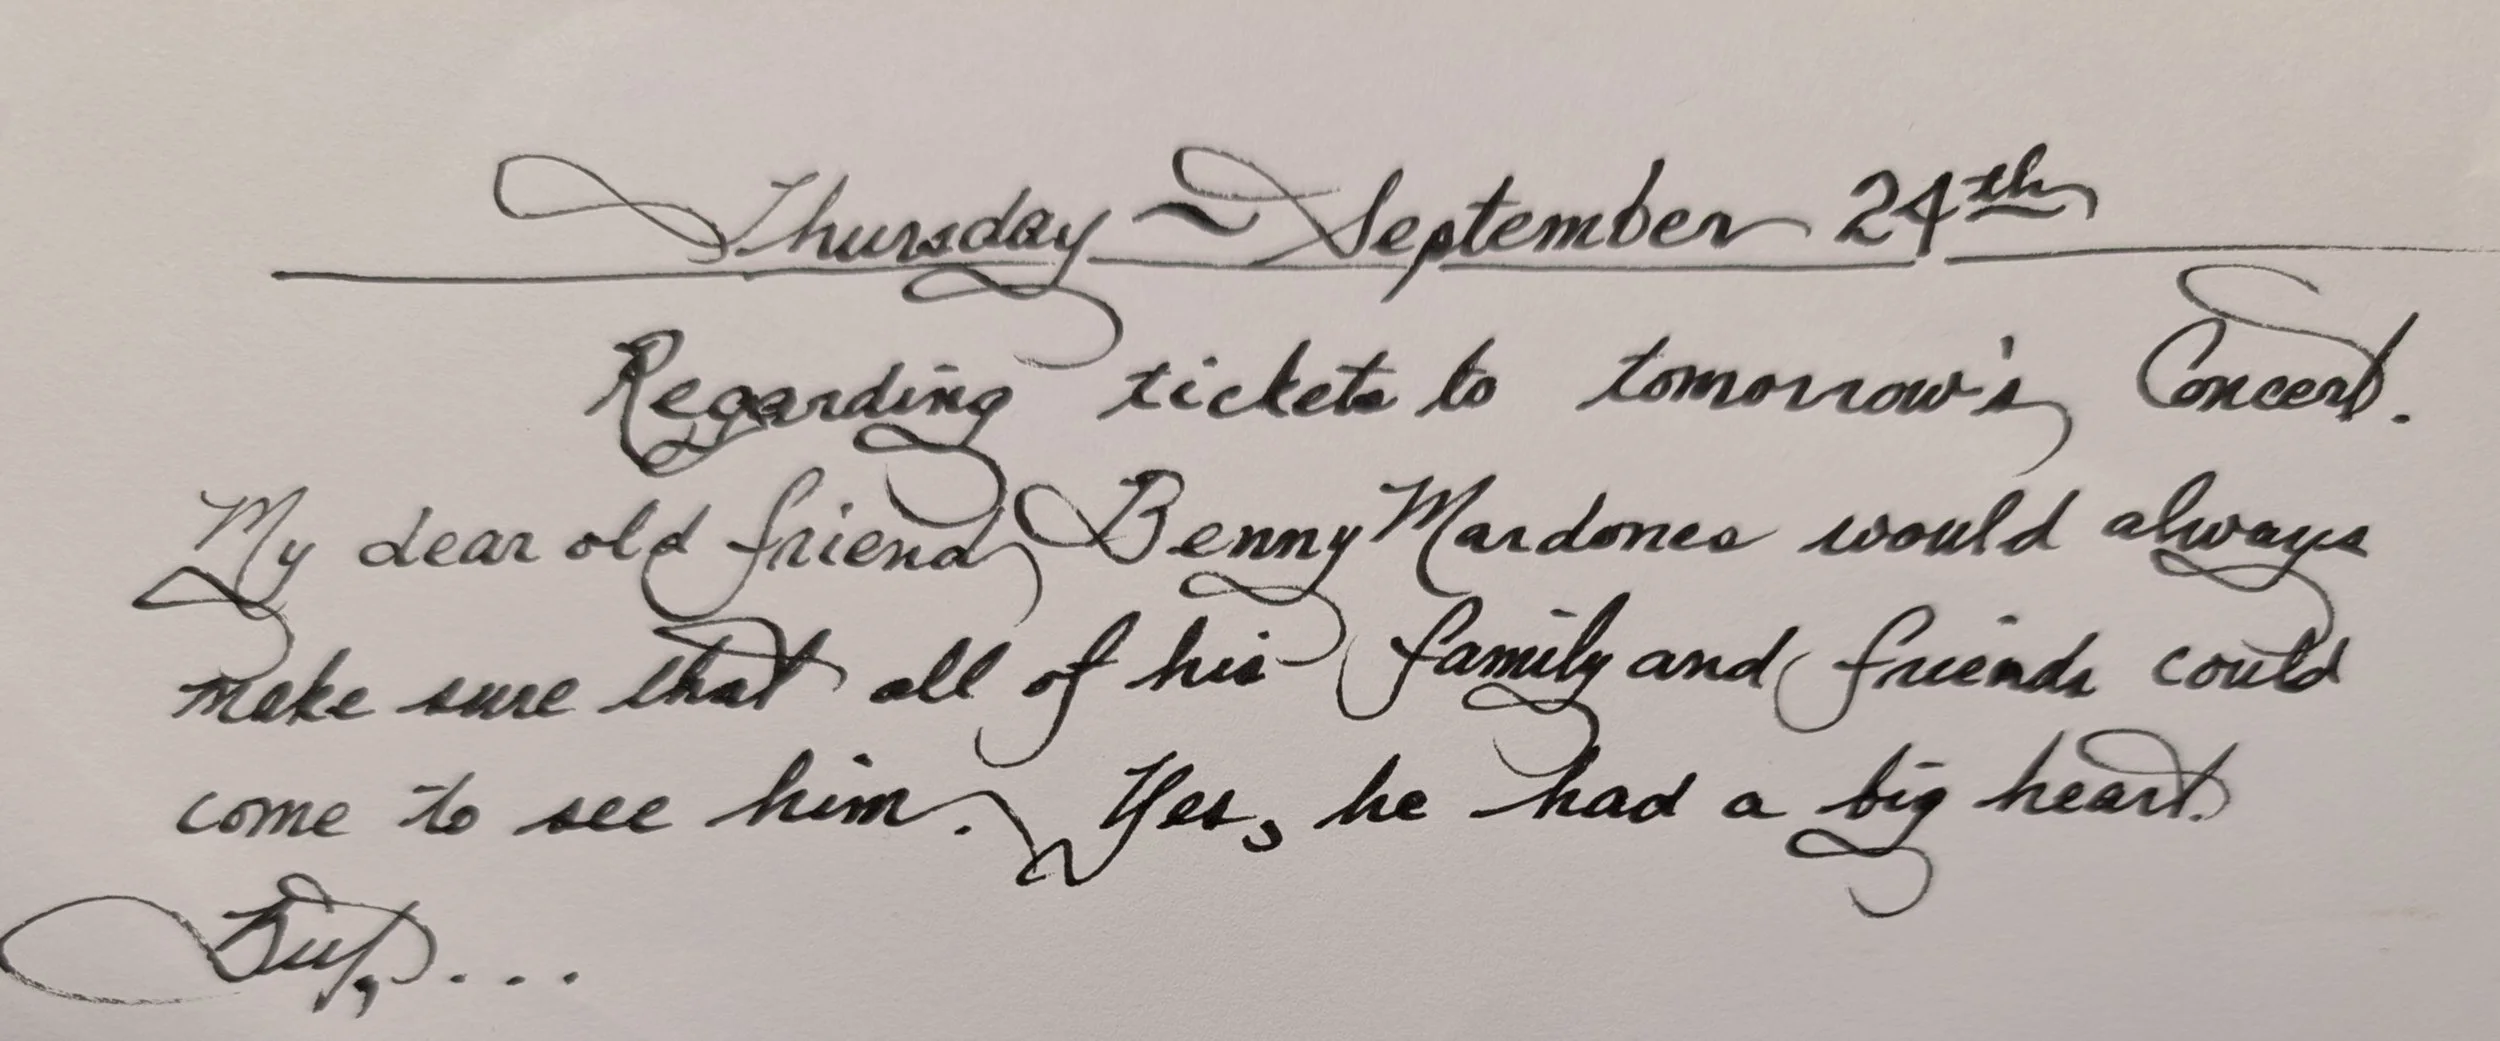 Thursday ~ September 24th
Regarding tickets to tomorrow's Concert.
My dear old friend Benny Mardones would always
make sure that all of his family and friends could
come to see him. Yes, he had a big heart.
But, ...